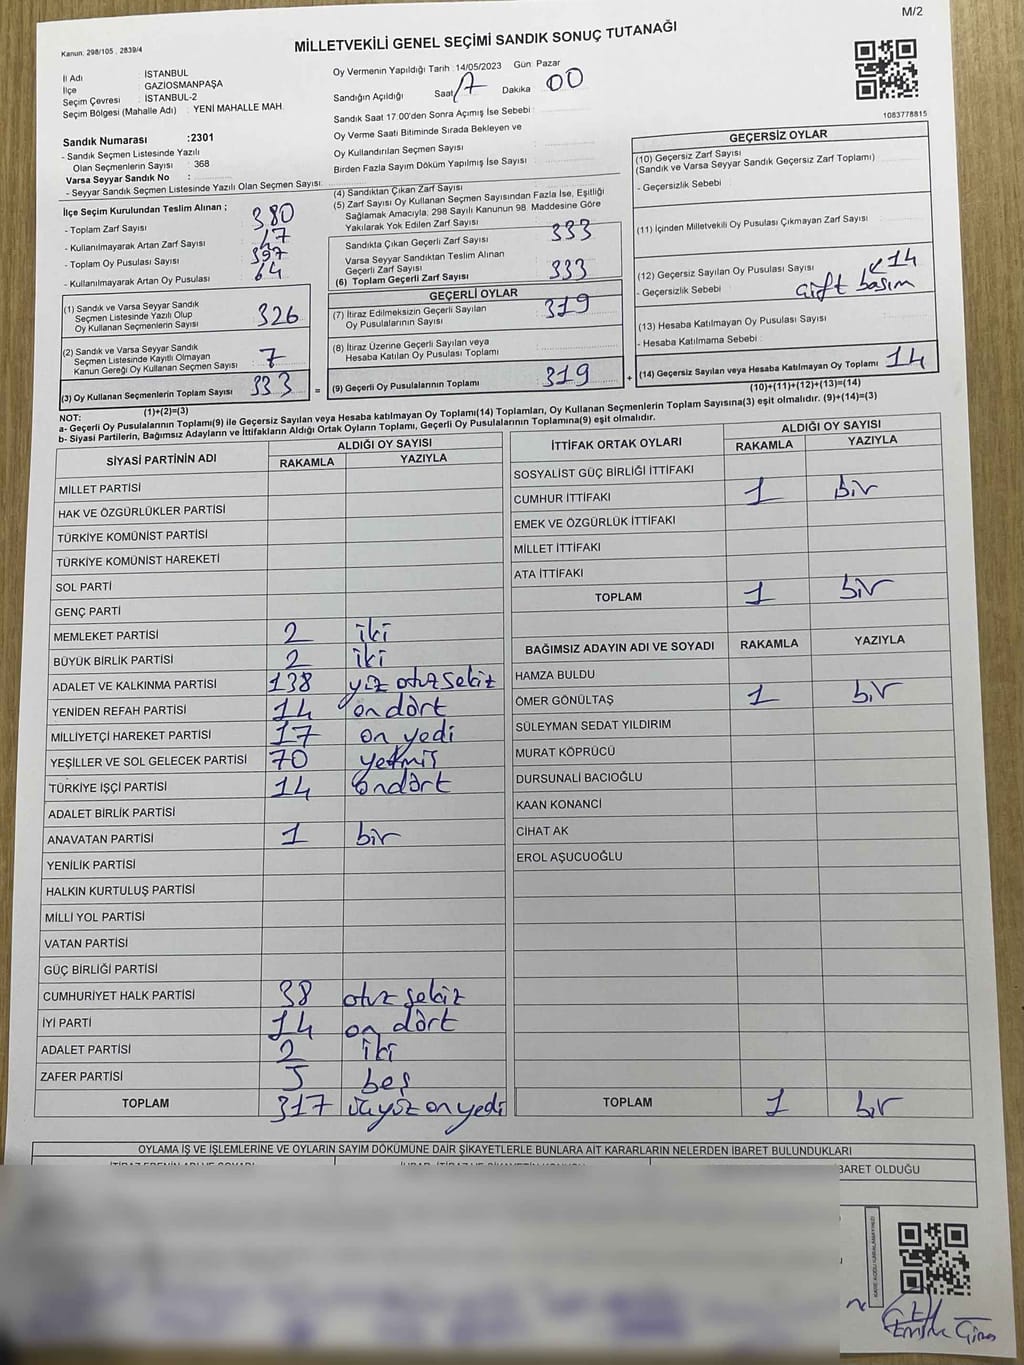 M/2
Kanun: 298/105 , 2839/4
MİLLETVEKİLİ GENEL SEÇİMİ SANDIK SONUÇ TUTANAĞI
İl Adı : İSTANBUL
İlçe : GAZİOSMANPAŞA
Seçim Çevresi : İSTANBUL-2
Seçim Bölgesi (Mahalle Adı) : YENİ MAHALLE MAH.
Oy Vermenin Yapıldığı Tarih :14/05/2023 Gün Pazar
Sandığın Açıldığı Saat Dakika 00
Sandık Saat 17:00'den Sonra Açımış İse Sebebi :
Oy Verme Saati Bitiminde Sırada Bekleyen ve
Oy Kullandırılan Seçmen Sayısı
Birden Fazla Sayım Döküm Yapılmış İse Sayısı
1083778815
Sandık Numarası :2301
- Sandık Seçmen Listesinde Yazılı
Olan Seçmenlerin Sayısı : 368
Varsa Seyyar Sandık No :
- Seyyar Sandık Seçmen Listesinde Yazılı Olan Seçmen Sayısı:
İlçe Seçim Kurulundan Teslim Alınan ;
- Toplam Zarf Sayısı : 380
- Kullanılmayarak Artan Zarf Sayısı : 47
- Toplam Oy Pusulası Sayısı : 397
- Kullanılmayarak Artan Oy Pusulası : 64
(1) Sandık ve Varsa Seyyar Sandık
Seçmen Listesinde Yazılı Olup
Oy Kullanan Seçmenlerin Sayısı : 326
(2) Sandık ve Varsa Seyyar Sandık
Seçmen Listesinde Kayıtlı Olmayan
Kanun Gereği Oy Kullanan Seçmen Sayısı : 7
(3) Oy Kullanan Seçmenlerin Toplam Sayısı : 333
(1)+(2)=(3)
(4) Sandıktan Çıkan Zarf Sayısı
(5) Zarf Sayısı Oy Kullanan Seçmen Sayısından Fazla İse, Eşitliği
Sağlamak Amacıyla, 298 Sayılı Kanunun 98. Maddesine Göre
Yakılarak Yok Edilen Zarf Sayısı
Sandıkta Çıkan Geçerli Zarf Sayısı : 333
Varsa Seyyar Sandıktan Teslim Alınan
Geçerli Zarf Sayısı
(6) Toplam Geçerli Zarf Sayısı : 333
GEÇERLİ OYLAR
(7) İtiraz Edilmeksizin Geçerli Sayılan
Oy Pusulalarının Sayısı : 319
(8) İtiraz Üzerine Geçerli Sayılan veya
Hesaba Katılan Oy Pusulası Toplamı
= (9) Geçerli Oy Pusulalarının Toplamı : 319
GEÇERSİZ OYLAR
(10) Geçersiz Zarf Sayısı
(Sandık ve Varsa Seyyar Sandık Geçersiz Zarf Toplamı)
- Geçersizlik Sebebi :
(11) İçinden Milletvekili Oy Pusulası Çıkmayan Zarf Sayısı
(12) Geçersiz Sayılan Oy Pusulası Sayısı : 14
- Geçersizlik Sebebi : çift basım
(13) Hesaba Katılmayan Oy Pusulası Sayısı :
- Hesaba Katılmama Sebebi :
+ (14) Geçersiz Sayılan veya Hesaba Katılmayan Oy Toplamı : 14
(10)+(11)+(12)+(13)=(14)
NOT:
a- Geçerli Oy Pusulalarının Toplamı(9) ile Geçersiz Sayılan veya Hesaba katılmayan Oy Toplamı(14) Toplamları, Oy Kullanan Seçmenlerin Toplam Sayısına(3) eşit olmalıdır. (9)+(14)=(3)
b- Siyasi Partilerin, Bağımsız Adayların ve İttifakların Aldığı Ortak Oyların Toplamı, Geçerli Oy Pusulalarının Toplamına(9) eşit olmalıdır.
SİYASİ PARTİNİN ADI ALDIĞI OY SAYISI
RAKAMLA YAZIYLA
MİLLET PARTİSİ
HAK VE ÖZGÜRLÜKLER PARTİSİ
TÜRKİYE KOMÜNİST PARTİSİ
TÜRKİYE KOMÜNİST HAREKETİ
SOL PARTİ
GENÇ PARTİ
MEMLEKET PARTİSİ 2 iki
BÜYÜK BİRLİK PARTİSİ 2 iki
ADALET VE KALKINMA PARTİSİ 138 yüz otuz sekiz
YENİDEN REFAH PARTİSİ 14 on dört
MİLLİYETÇİ HAREKET PARTİSİ 17 on yedi
YEŞİLLER VE SOL GELECEK PARTİSİ 70 yetmiş
TÜRKİYE İŞÇİ PARTİSİ 14 on dört
ADALET BİRLİK PARTİSİ
ANAVATAN PARTİSİ 1 bir
YENİLİK PARTİSİ
HALKIN KURTULUŞ PARTİSİ
MİLLİ YOL PARTİSİ
VATAN PARTİSİ
GÜÇ BİRLİĞİ PARTİSİ
CUMHURİYET HALK PARTİSİ 38 otuz sekiz
İYİ PARTİ 14 on dört
ADALET PARTİSİ 2 iki
ZAFER PARTİSİ 5 beş
TOPLAM 317 üçyüz on yedi
İTTİFAK ORTAK OYLARI ALDIĞI OY SAYISI
RAKAMLA YAZIYLA
SOSYALİST GÜÇ BİRLİĞİ İTTİFAKI
CUMHUR İTTİFAKI 1 bir
EMEK VE ÖZGÜRLÜK İTTİFAKI
MİLLET İTTİFAKI
ATA İTTİFAKI
TOPLAM 1 bir
BAĞIMSIZ ADAYIN ADI VE SOYADI RAKAMLA YAZIYLA
HAMZA BULDU
ÖMER GÖNÜLTAŞ 1 bir
SÜLEYMAN SEDAT YILDIRIM
MURAT KÖPRÜCÜ
DURSUNALİ BACIOĞLU
KAAN KONANCİ
CİHAT AK
EROL AŞUCUOĞLU
TOPLAM 1 bir
OYLAMA İŞ VE İŞLEMLERİNE VE OYLARIN SAYIM DÖKÜMÜNE DAİR ŞİKAYETLERLE BUNLARA AİT KARARLARIN NELERDEN İBARET BULUNDUKLARI
BARET OLDUĞU